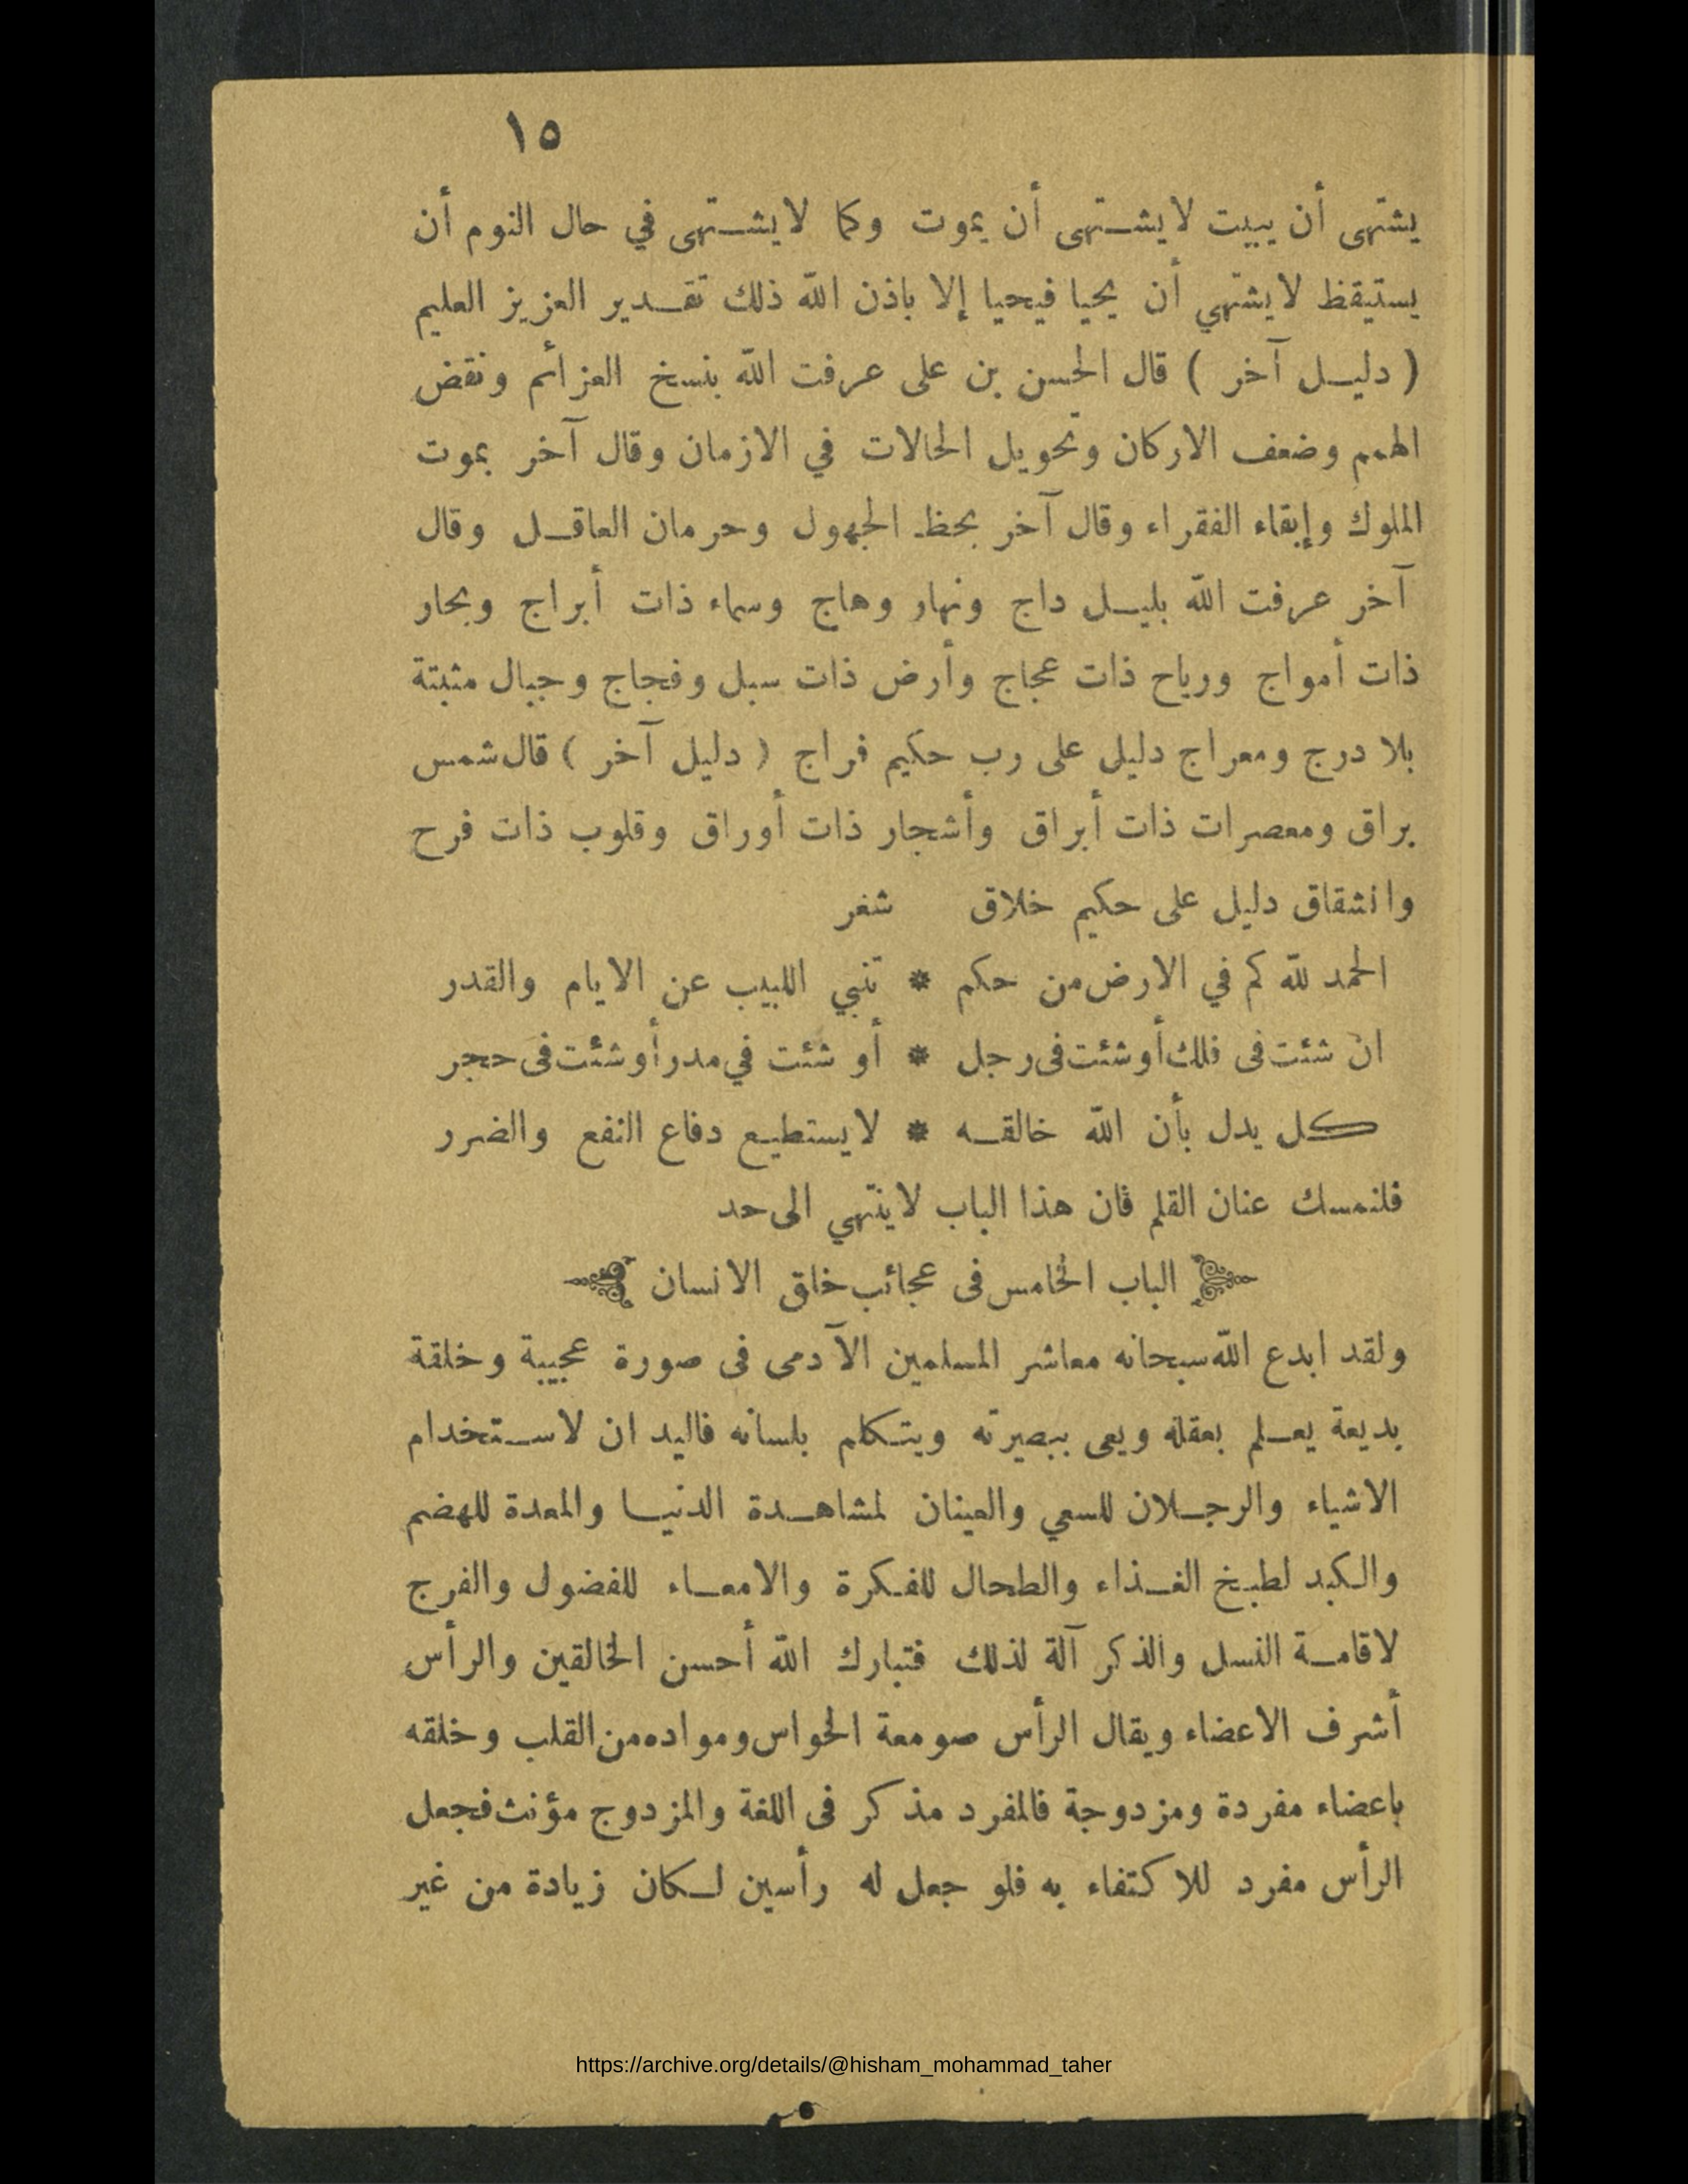 ١٥
يشتهى أن يبيت لا يشتهى أن يموت وكما لا يشتهى في حال النوم أن
يستيقظ لا يشتهي أن يحيا فيحيا إلا باذن الله ذلك تقدير العزيز العليم
( دليل آخر ) قال الحسن بن على عرفت الله بنسخ العزائم ونقض
الهمم وضعف الاركان وتحويل الحالات في الازمان وقال آخر بموت
الملوك وإبقاء الفقراء وقال آخر بحظ الجهول وحرمان العاقل وقال
آخر عرفت الله بليل داج ونهار وهاج وسماء ذات أبراج وبحار
ذات أمواج ورياح ذات عجاج وأرض ذات سبل وفجاج وجبال مثبتة
بلا درج ومعراج دليل على رب حكيم فراج ( دليل آخر ) قال شمس
براق ومعصرات ذات أبراق وأشجار ذات أوراق وقلوب ذات فرح
وانشقاق دليل على حكيم خلاق شغر
الحمد لله كم في الارض من حكم * تنبي اللبيب عن الايام والقدر
ان شئت فى فلك أو شئت فى رجل * أو شئت في مدر أو شئت فى حجر
كل يدل بأن الله خالقه * لا يستطيع دفاع النفع والضرر
فلنمسك عنان القلم فان هذا الباب لا ينتهي الى حد
الباب الخامس فى عجائب خلق الانسان
ولقد ابدع الله سبحانه معاشر المسلمين الآدمى فى صورة عجيبة وخلقة
بديعة يعلم بعقله ويعى ببصيرته ويتكلم بلسانه فاليدان لاستخدام
الاشياء والرجلان للسعي والعينان لمشاهدة الدنيا والمعدة للهضم
والكبد لطبخ الغذاء والطحال للفكرة والامعاء للفضول والفرج
لاقامة النسل والذكر آلة لذلك فتبارك الله أحسن الخالقين والرأس
أشرف الاعضاء ويقال الرأس صومعة الحواس ومواده من القلب وخلقه
باعضاء مفردة ومزدوجة فالمفرد مذكر فى اللغة والمزدوج مؤنث فجعل
الرأس مفرد للاكتفاء به فلو جعل له رأسين لكان زيادة من غير
https://archive.org/details/@hisham_mohammad_taher